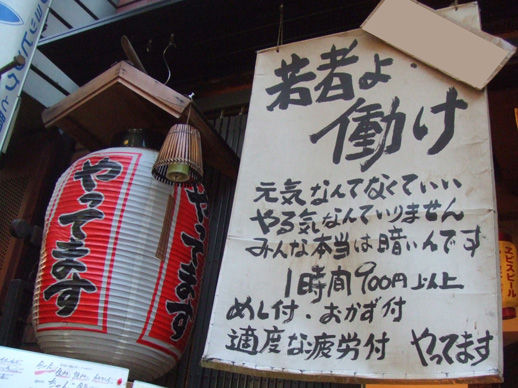 若者よ、
働け
元気なんてなくていい
やる気なんていりません
みんな本当は暗いんです
1時間900円以上
めし付・おかず付
適度な疲労付 やってます
やってます
やってます
ヱビスビール